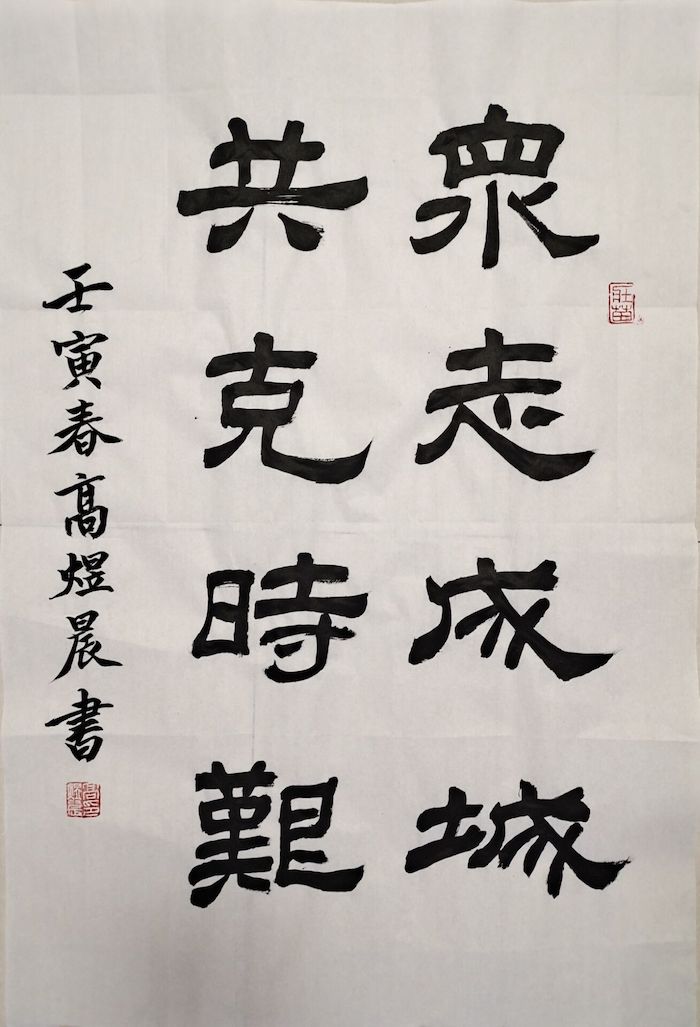 眾志成城
共克時艱
壬寅春高煜晨書